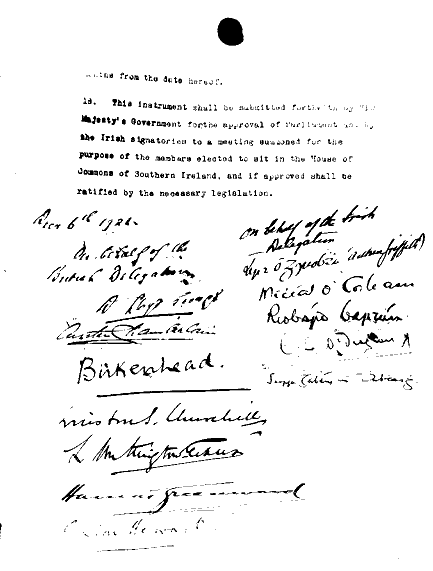 from the date hereof.
18. This instrument shall be submitted forthwith by His
Majesty's Government for the approval of Parliament and by
the Irish signatories to a meeting summoned for the
purpose of the members elected to sit in the House of
Commons of Southern Ireland, and if approved shall be
ratified by the necessary legislation.
Decr 6th 1921.
On behalf of the
British Delegation
D Lloyd George
Austen Chamberlain
Birkenhead.
Winston S. Churchill
L Worthington-Evans
Hamar Greenwood
Gordon Hewart
On behalf of the Irish
Delegation
Art Ó Gríobhtha (Arthur Griffith)
Mícéal Ó Coileáin
Riobárd Bartún